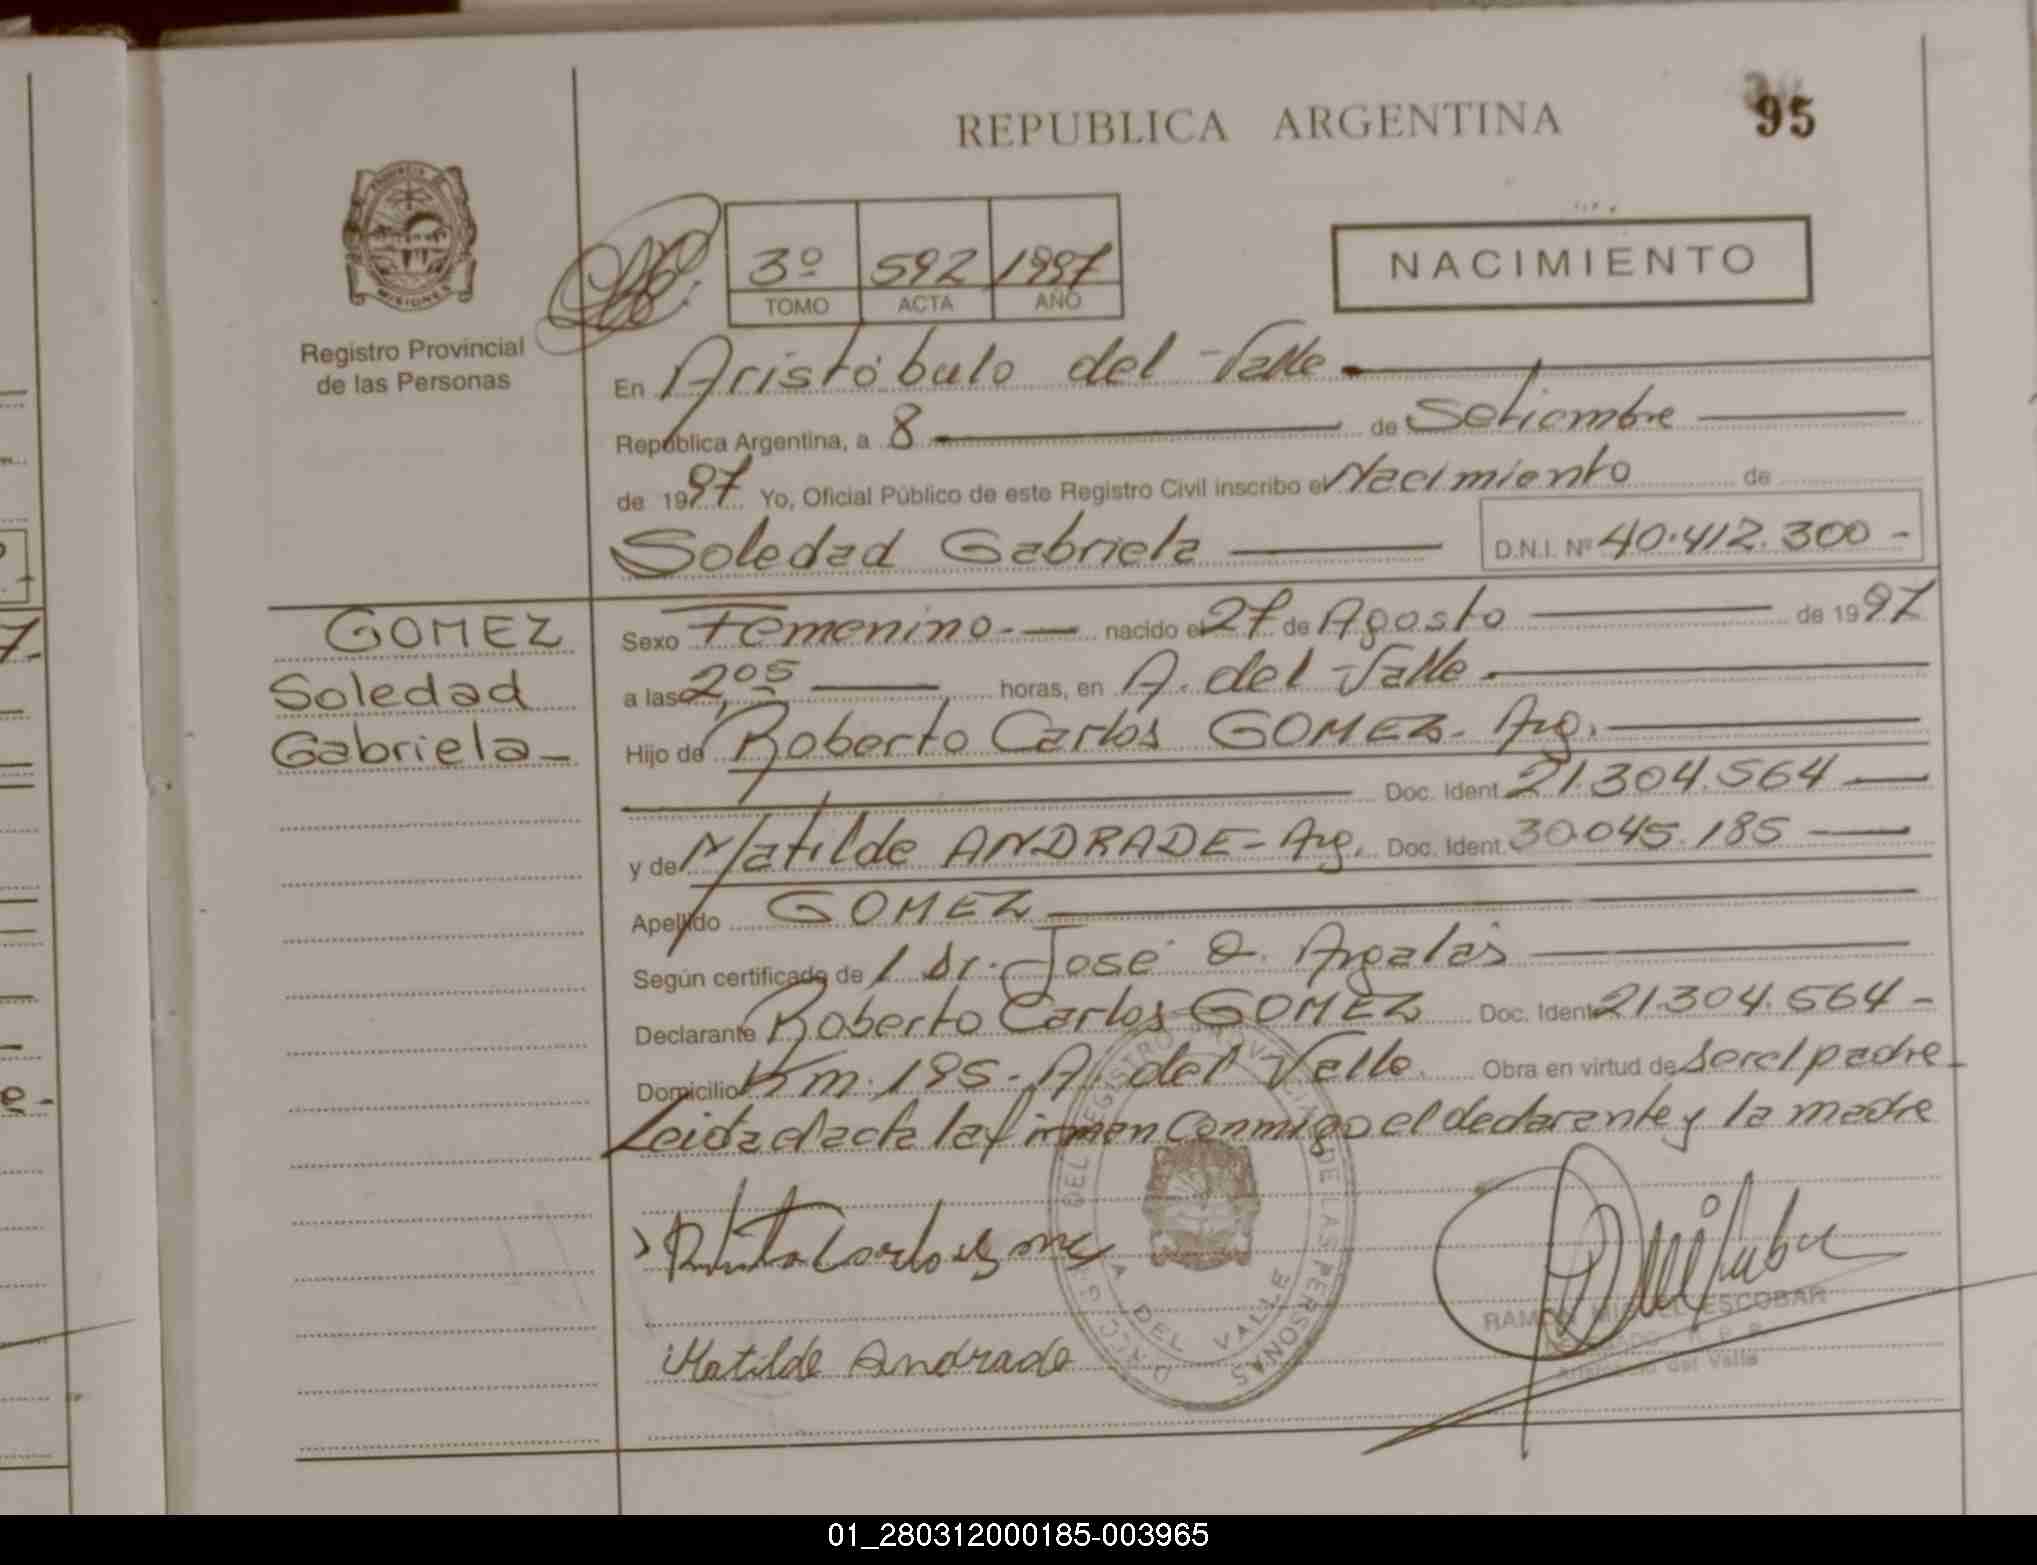 REPUBLICA ARGENTINA
95
MISIONES
Registro Provincial
de las Personas
3º 592 1997
TOMO ACTA AÑO
NACIMIENTO
En Aristóbulo del Valle
República Argentina, a 8 de Setiembre
de 1997 Yo, Oficial Público de este Registro Civil inscribo el Nacimiento de
Soledad Gabriela D.N.I. Nº 40.412.300-
GOMEZ
Soledad
Gabriela-
Sexo Femenino.- nacido el 27 de Agosto de 1997
a las 2,05 horas, en A. del Valle
Hijo de Roberto Carlos GOMEZ- Arg.
Doc. Ident. 21.304.564
y de Matilde ANDRADE- Arg. Doc. Ident. 30.045.185
Apellido GOMEZ
Según certificado de / Dr. José O. Argalas
Declarante Roberto Carlos GOMEZ Doc. Ident. 21.304.564-
Domicilio Km. 195- A. del Valle. Obra en virtud de ser el padre-
Leida el acta la firman conmigo el declarante y la madre
DEL REGISTRO PROVINCIAL DE LAS PERSONAS
A. DEL VALLE
Matilde Andrade
RAMON MIGUEL ESCOBAR
Aristóbulo del Valle
01_280312000185-003965